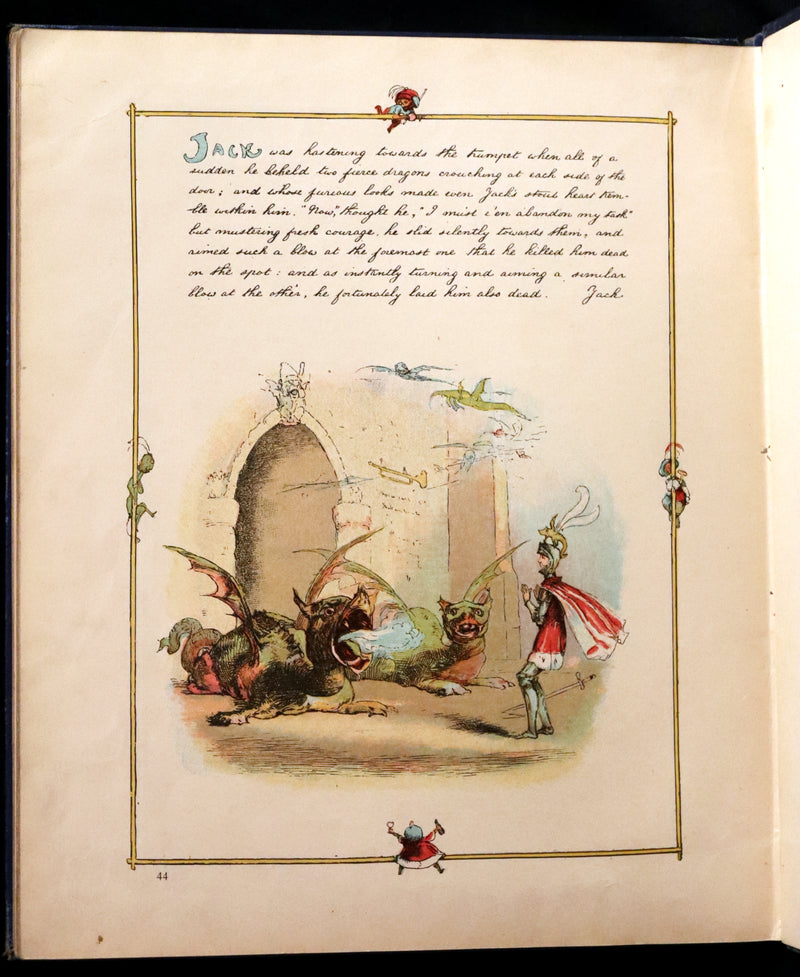 JACK was hastening towards the trumpet when all of a
sudden he beheld two fierce dragons crouching at each side of the
door; and whose furious looks made even Jack's stout heart trem-
-ble within him. "Now," thought he, "I must e'en abandon my task"
but mustering fresh courage, he slid silently towards them, and
aimed such a blow at the foremost one that he killed him dead
on the spot: and as instantly turning and aiming a similar
blow at the other, he fortunately laid him also dead. Jack
44